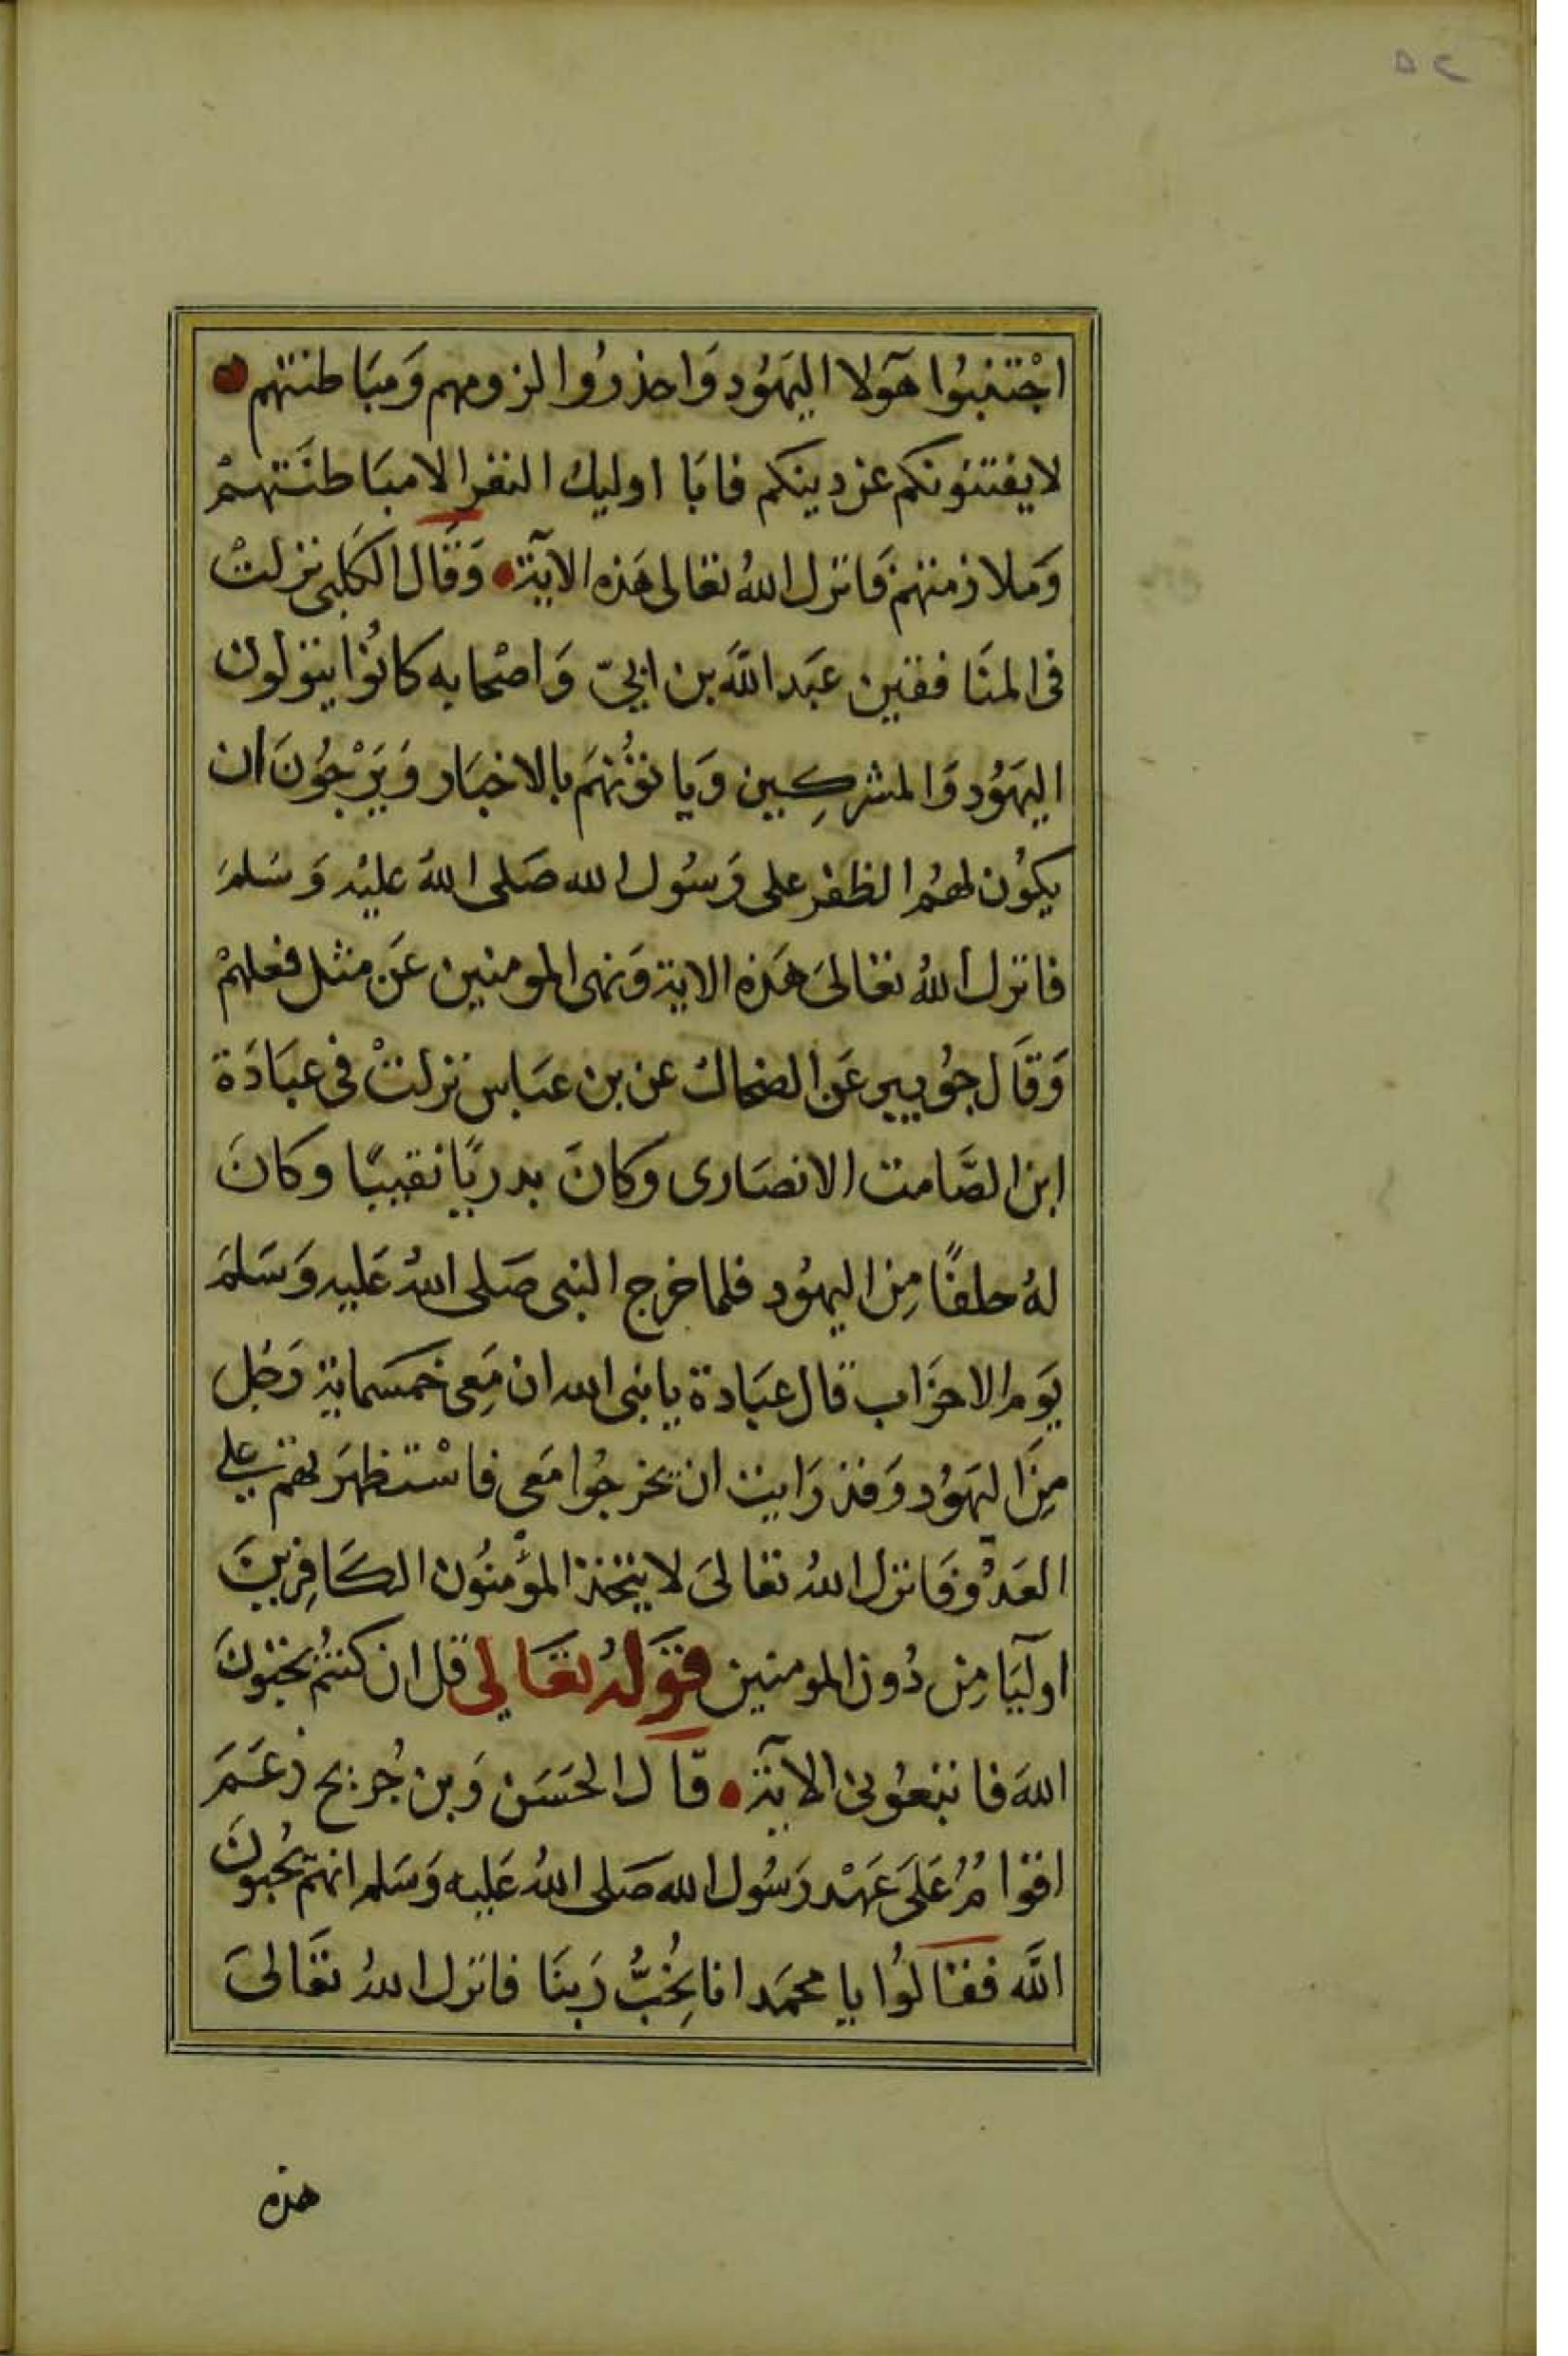 ٥٢
اجْتنبُوا هَآولا اليَهُود وَاحذرُوا لزومهم وَمبَاطنتهم
لايفتنونكم عن دينكم فابَا اوليك النفر الا مبَاطنَتهمْ
وَملازمتهمْ فَانزل اللهُ تعَالى هَذه الآية وَقَال الكَلبى نزلتْ
فى المنَافقين عَبَد اللّه بن ابيّ وَاصْحابه كانُوا يتولون
اليَهُود وَالمشركِين وَياتوُنهَم بالاخبَار وَيَرْجوُنَ ان
يكوُن لهمُ الظفر على رَسُول الله صَلى اللهُ عليْه وَسَلمَ
فانزل اللهُ تعَالىَ هَذه الاية وَنهى المومنين عَن مثل فعلهمْ
وَقاَل جُويبر عَن الضحاك عن بن عبَاس نزلتْ فى عبَادَة
ابن الصَّامت الانصَارى وكانَ بدريًا نقيبًا وكانَ
لهُ حلفًا مِن اليهُود فلما خرج النبى صَلى اللهُ عَليه وَسَلمَ
يَوم الاحزَاب قال عبَادة يا نبى الله ان مَعِى خمسماية رَجُل
مِنَ اليَهوُد وَقد رَايت ان يخرجُوا مَعى فاسْتظهَر بهم على
العَدُوّ فاَنزل اللهُ تعَالىَ لا يتخذ المؤْمنُون الكَافِرينَ
اوليَا مِن دُون المومنين قوَلهُ تعَالى قل ان كنتُم تحبّونَ
اللهَ فاتبعُونى الاية قاَل الحَسَن وَبن جُريج زعَمَ
اقوَامُُ عَلىَ عَهْد رَسُول الله صَلى اللهُ عَليه وَسَلم انهم يُحبونَ
اللَّه فقالوُا يا محمَد انا نحِبُّ رَبنَا فانزل اللهُ تعَالىَ
هذه